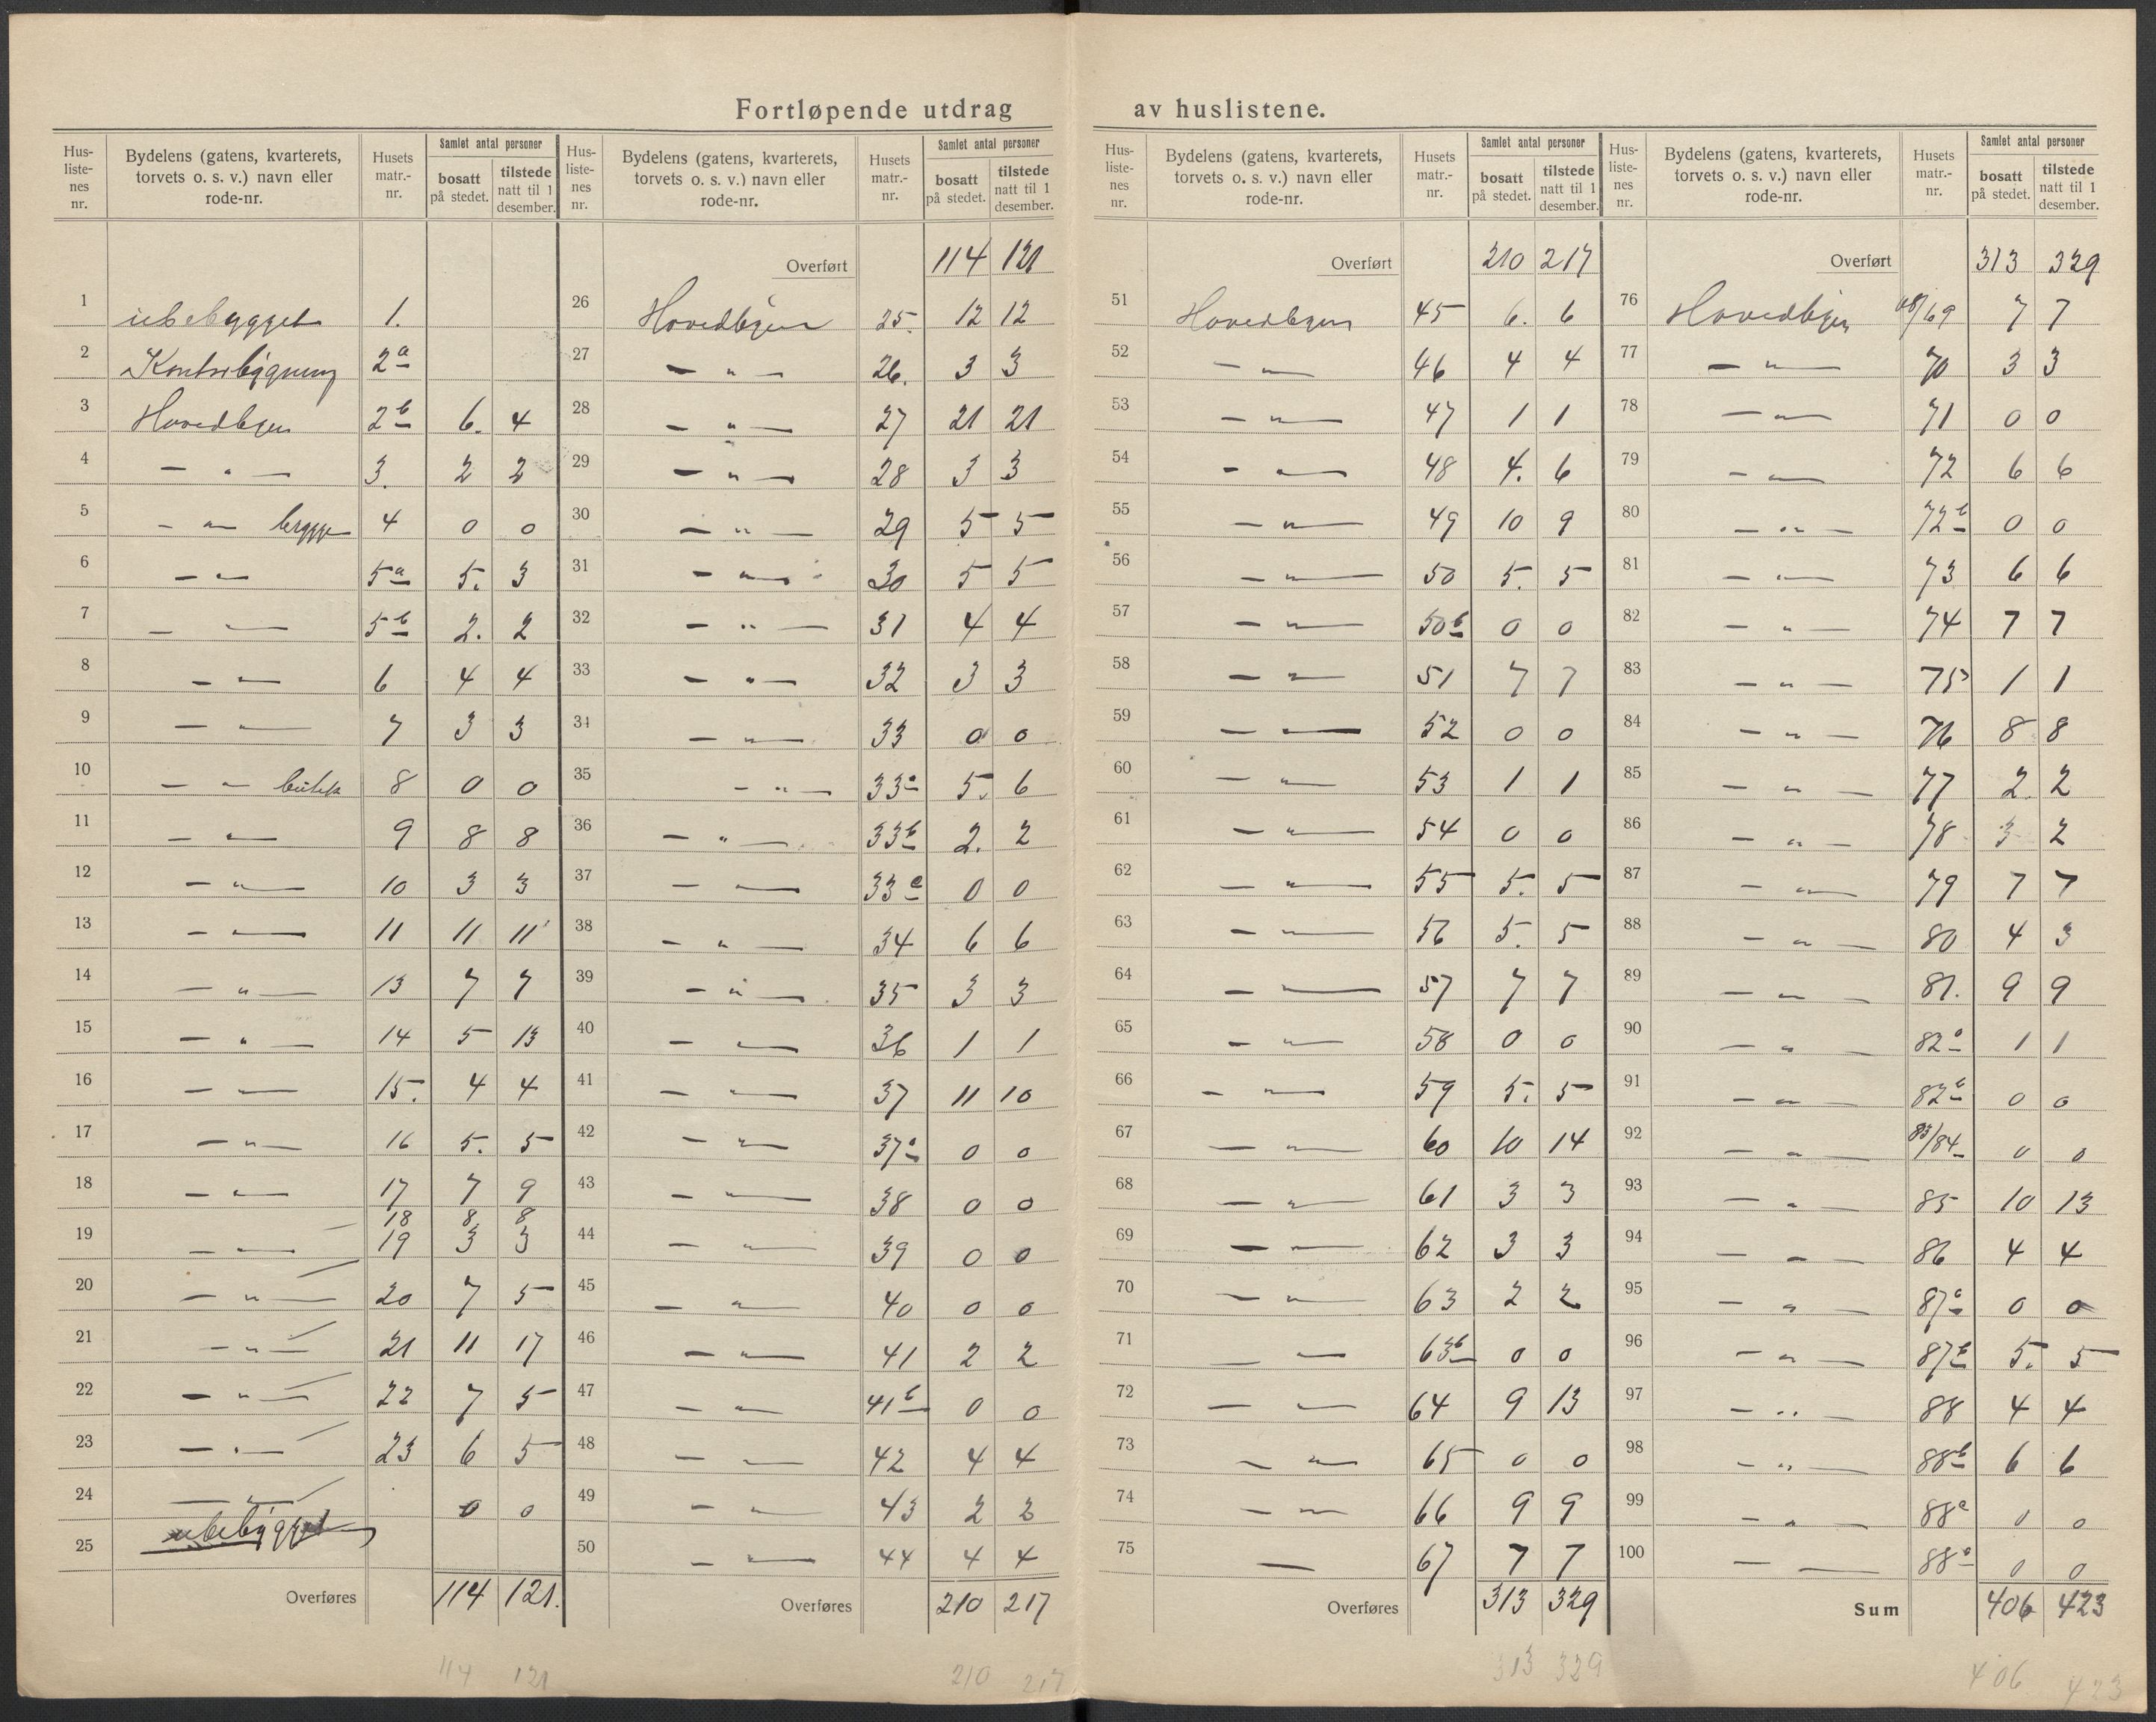 Fortløpende utdrag av huslistene.
Hus-listenes nr. | Bydelens (gatens, kvarterets, torvets o. s. v.) navn eller rode-nr. | Husets matr.-nr. | Samlet antal personer bosatt på stedet. | tilstede natt til 1 desember.
1 ubebygget 1.
2 Kontorbygning 2a
3 Hovedbyen 2b 6. 4
4 — " — 3. 2 2
5 — " — brygge 4 0 0
6 — " — 5a 5. 3
7 — " — 5b 2. 2
8 — " — 6 4 4
9 — " — 7 3 3
10 — " — butik 8 0 0
11 — " — 9 8 8
12 — " — 10 3 3
13 — " — 11 11 11
14 — " — 13 7 7
15 — " — 14 5 13
16 — " — 15. 4 4
17 — " — 16 5. 5
18 — " — 17 7 9
18 8 8
19 — " — 19 3 3
20 — " — 20 7 5
21 — " — 21 11 17
22 — " — 22 7 5
23 — " — 23 6 5
24 — " — 0 0
25 ubebygget
Overføres 114 121.
114 121
Hus-listenes nr. | Bydelens (gatens, kvarterets, torvets o. s. v.) navn eller rode-nr. | Husets matr.-nr. | Samlet antal personer bosatt på stedet. | tilstede natt til 1 desember.
Overført 114 121
26 Hovedbyen 25. 12 12
27 — " — 26. 3 3
28 — " — 27 21 21
29 — " — 28 3 3
30 — " — 29 5 5
31 — " — 30 5 5
32 — " — 31 4 4
33 — " — 32 3 3
34 — " — 33 0 0
35 — " — 33a 5. 6
36 — " — 33b 2. 2
37 — " — 33c 0 0
38 — " — 34 6 6
39 — " — 35 3 3
40 — " — 36 1 1
41 — " — 37 11 10
42 — " — 37a 0 0
43 — " — 38 0 0
44 — " — 39 0 0
45 — " — 40 0 0
46 — " — 41 2 2
47 — " — 41b 0 0
48 — " — 42 4 4
49 — " — 43 2 2
50 — " — 44 4 4
Overføres 210 217
210 217
Hus-listenes nr. | Bydelens (gatens, kvarterets, torvets o. s. v.) navn eller rode-nr. | Husets matr.-nr. | Samlet antal personer bosatt på stedet. | tilstede natt til 1 desember.
Overført 210 217
51 Hovedbyen 45 6. 6
52 — " — 46 4 4
53 — " — 47 1 1
54 — " — 48 4. 6
55 — " — 49 10 9
56 — " — 50 5. 5
57 — " — 50b 0 0
58 — " — 51 7 7
59 — " — 52 0 0
60 — " — 53 1 1
61 — " — 54 0 0
62 — " — 55 5. 5
63 — " — 56 5. 5
64 — " — 57 7 7
65 — " — 58 0 0
66 — " — 59 5. 5
67 — " — 60 10 14
68 — " — 61 3 3
69 — " — 62 3 3
70 — " — 63 2 2
71 — — 63b 0 0
72 — " — 64 9 13
73 — " — 65 0 0
74 — " — 66 9 9
75 — 67 7 7
Overføres 313 329
313 329
Hus-listenes nr. | Bydelens (gatens, kvarterets, torvets o. s. v.) navn eller rode-nr. | Husets matr.-nr. | Samlet antal personer bosatt på stedet. | tilstede natt til 1 desember.
Overført 313 329
76 Hovedbyen 68/69 7 7
77 — " — 70 3 3
78 — " — 71 0 0
79 — " — 72 6 6
80 — " — 72b 0 0
81 — " — 73 6 6
82 — " — 74 7 7
83 — " — 75 1 1
84 — " — 76 8 8
85 — " — 77 2. 2
86 — " — 78 3 2
87 — " — 79 7 7
88 — " — 80 4 3
89 — " — 81. 9 9
90 — " — 82a 1 1
91 — " — 82b 0 0
92 — " — 83/84 0 0
93 — " — 85 10 13
94 — " — 86 4 4
95 — " — 87a 0 0
96 — " — 87b 5. 5
97 — " — 88 4 4
98 — " — 88b 6 6
99 — " — 88a 0 0
100 — — 0 0
Sum 406 423
406 423